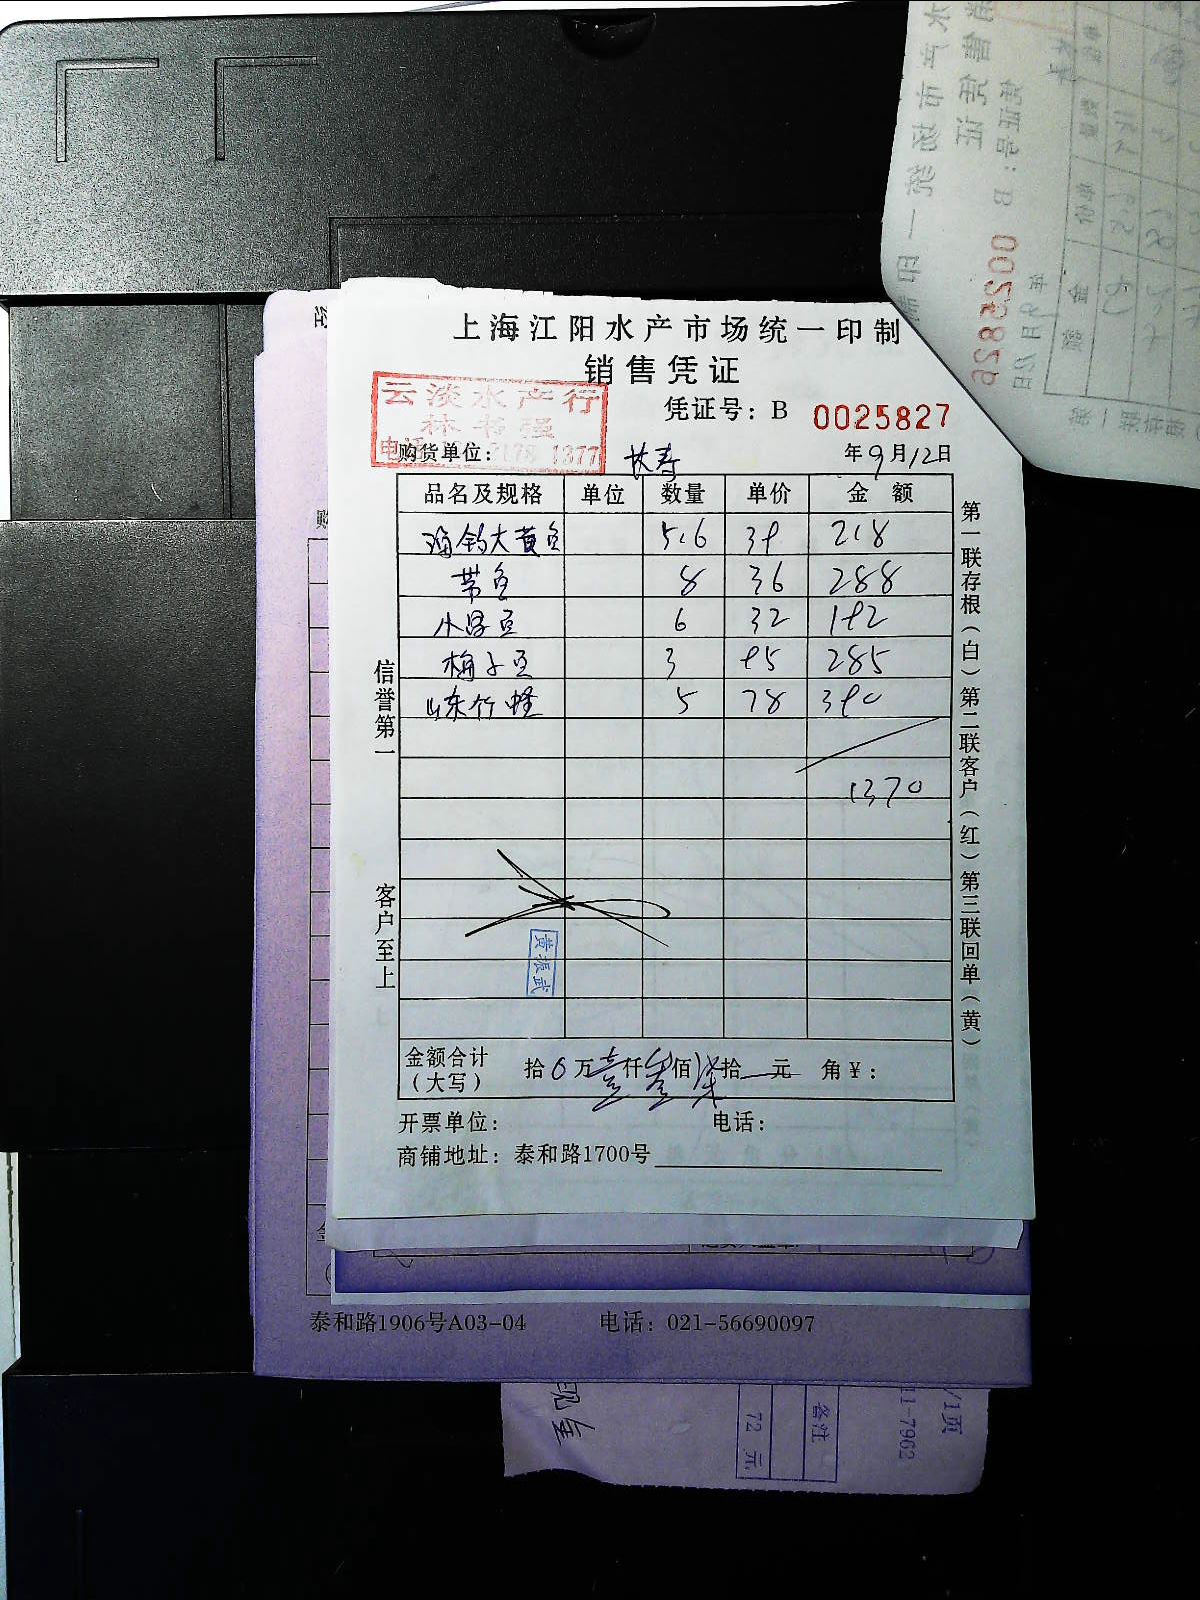 上海江阳水产市场统一印制
销售凭证
云淡水产行
林书强
电话 178 1377
凭证号：B 0025827
购货单位： 长寿 年9月12日
品名及规格 单位 数量 单价 金额
海钓大黄鱼 5.6 39 218
带鱼 8 36 288
小昌鱼 6 32 192
梅子鱼 3 95 285
山东竹蛏 5 78 390
1370
信誉第一
客户至上
第一联存根（白）第二联客户（红）第三联回单（黄）
黄振武
金额合计（大写） 拾0万壹仟叁佰柒拾 元 角￥：
开票单位： 电话：
商铺地址：泰和路1700号
泰和路1906号A03-04 电话：021-56690097
现金
72 元
备注
11-7962
/1页
0025826